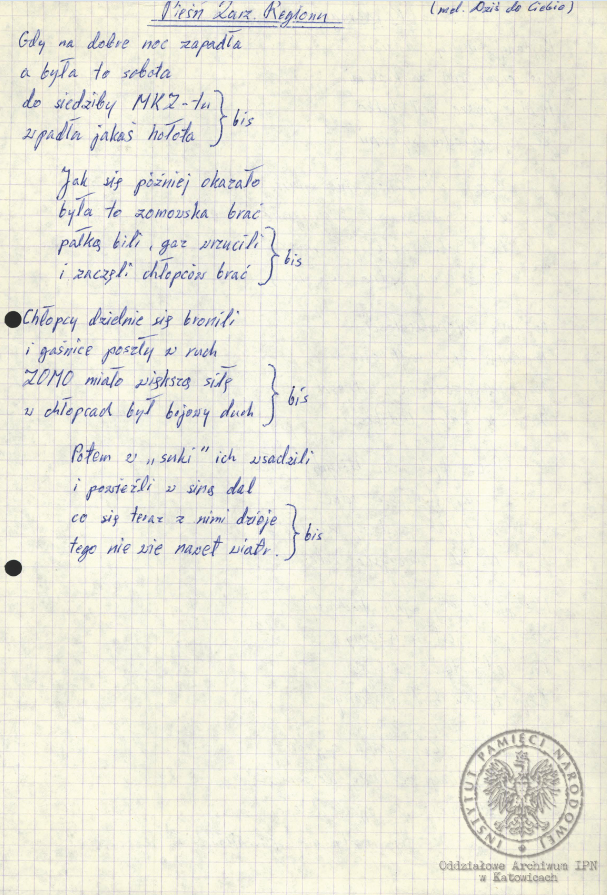 Pieśń Zarz. Regionu
(mel. Dziś do Ciebie)
Gdy na dobre noc zapadła
a była to sobota
do siedziby MKZ-tu
wpadła jakaś hołota
} bis
Jak się później okazało
była to zomowska brać
pałką bili, gaz wrzucili
i zaczęli chłopców brać
} bis
Chłopcy dzielnie się bronili
i gaśnice poszły w ruch
ZOMO miało większą siłę
w chłopcach był bojowy duch
} bis
Potem w „suki" ich wsadzili
i powieźli w siną dal
co się teraz z nimi dzieje
tego nie wie nawet wiatr.
} bis
INSTYTUT PAMIĘCI NARODOWEJ
Oddziałowe Archiwum IPN
w Katowicach